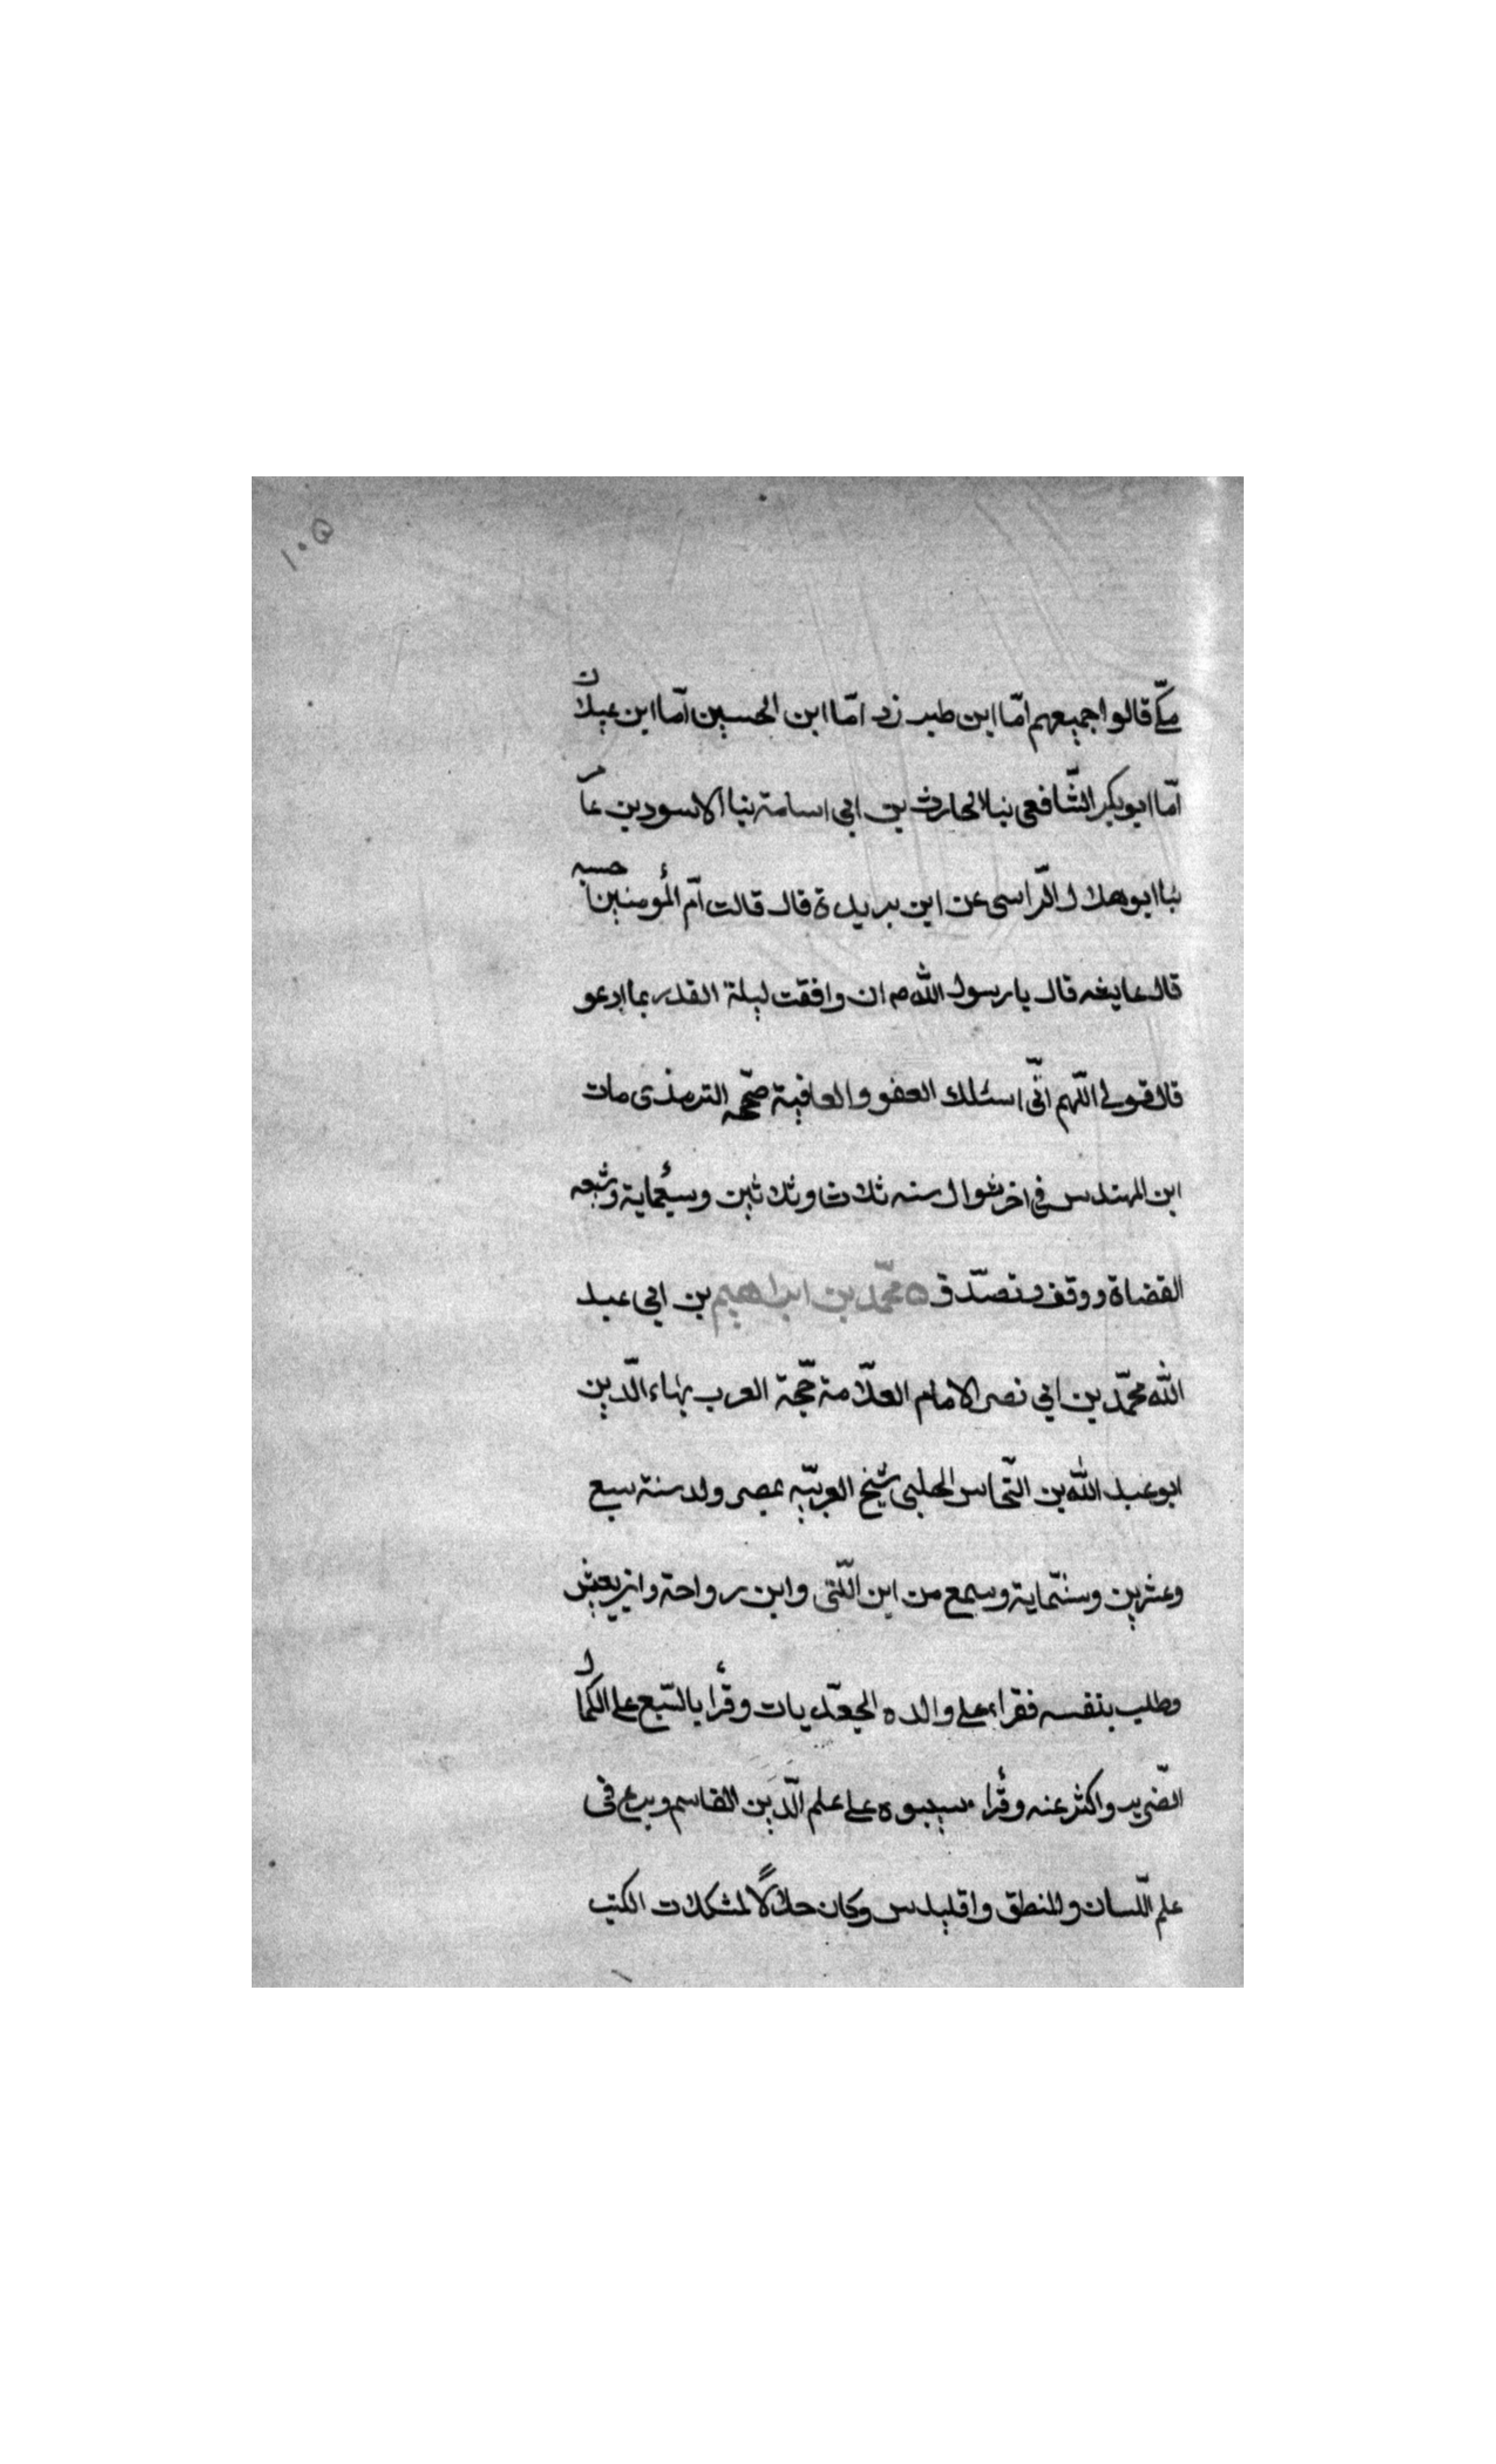 ١٠٥
مكّى قالوا جميعهم امّا ابن طبرزد امّا ابن الحسين امّا ابن عيلان
امّا ابو بكر الشّافعى نبا الحارث بن ابى اسامة نبا الاسود بن عامر
نبا ابو هلال الرّاسى عن ابن بريدة قال قالت اُمّ المُؤمنين
قال قال يا رسول الله ص ان وافقت ليلة القدر بما ادعو
قال قولى اللّهم انّى اسئلك العفو والعافية صحّحه الترمذى مات
ابن المهندس فى اخر شوال سنه ثلاث وثلاثين وسبعماية وشيّعه
القضاة ووقف وتصدّق ه محمّد بن ابراهيم بن ابى عبد
الله محمّد بن ابى نصر الامام العلّامة حجّة العرب بهاء الدّين
ابو عبد الله بن النّحاس الحلبى شيخ العربيّه بمصر ولد سنة سبع
وعشرين وستّماية وسمع من ابن اللّتى وابن رواحة وابن يعيش
وطلب بنفسه فقراء على والده الجعّديات وقرأ بالسّبع على الكمال
الضّرير واكثر عنه وقرأ سيبويه على علم الدّين القاسم وبرع فى
علم اللّسان والمنطق واقليدس وكان حلّالًا لمشكلات الكتب